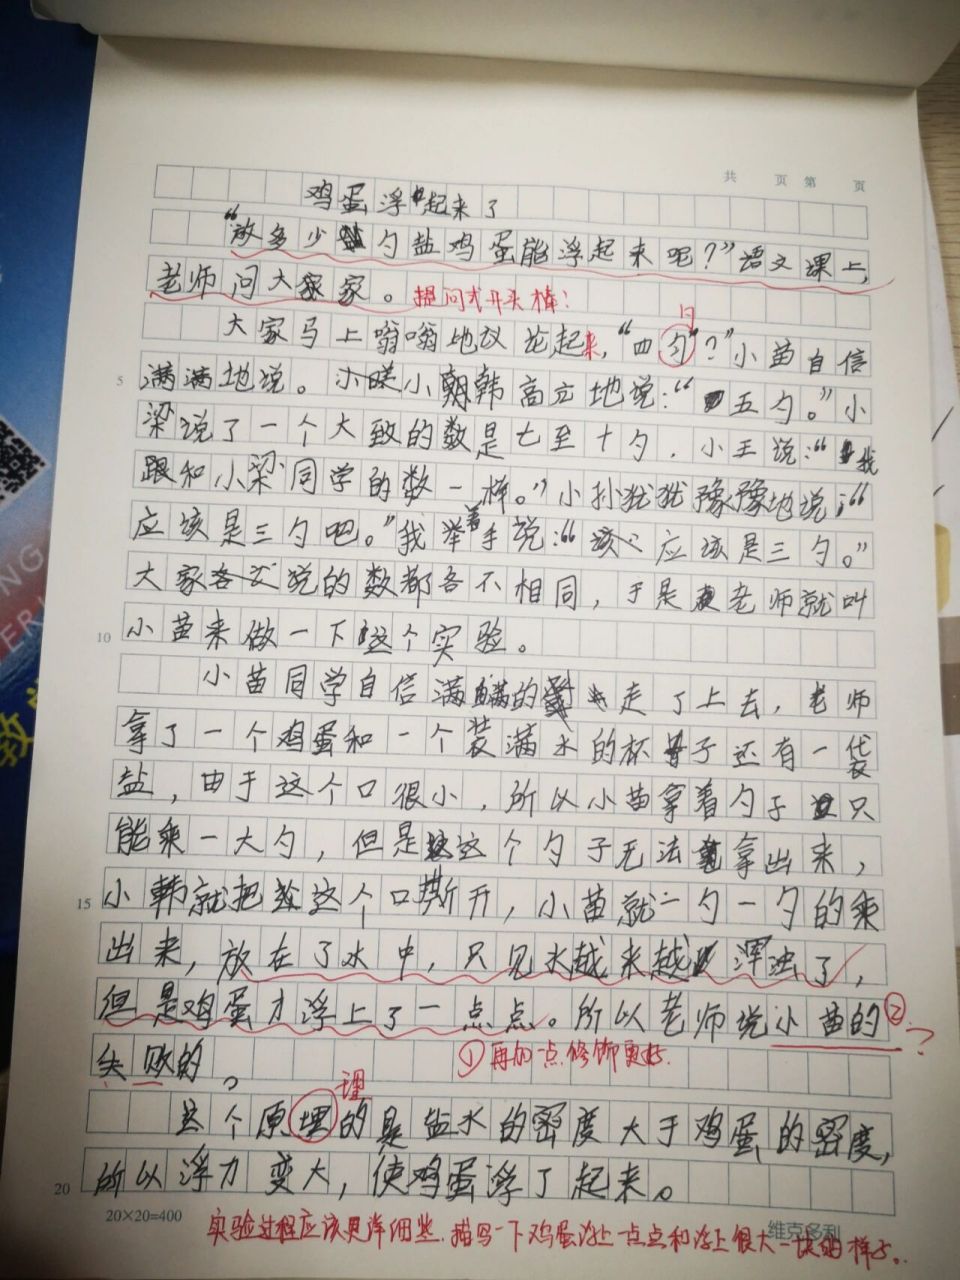 共 页 第 页
鸡蛋浮起来了
“放多少勺盐鸡蛋能浮起来呢？”语文课上，
老师问大家。 提问式开头棒！
大家马上嗡嗡地议论起来，“四勺”？”小苗自信
5 满满地说。小韩高亢地说：“五勺。”小
梁说了一个大致的数是七至十勺．小王说：“我
跟和小梁同学的数一样。”小孙犹犹豫豫地说；“
应该是三勺吧。”我举着手说：“应该是三勺。”
大家说的数都各不相同，于是老师就叫
10 小苗来做一下这个实验。
小苗同学自信满满的走了上去，老师
拿了一个鸡蛋和一个装满水的杯子还有一袋
盐，由于这个口很小，所以小苗拿着勺子只
能乘一大勺，但是这个勺子无法拿出来，
15 小韩就把这个口撕开，小苗就一勺一勺的乘
出来，放在了水中，只见水越来越浑浊了，
但是鸡蛋才浮上了一点点。所以老师说小苗的 ② ?
失败的。 ①再加一点修饰更好.
理
这个原埋的是盐水的密度大于鸡蛋的密度，
20 所以浮力变大，使鸡蛋浮了起来。
20×20=400 维克多利
实验过程应该更详细些.描写一下鸡蛋浮上一点点和浮上很大一块的样子。